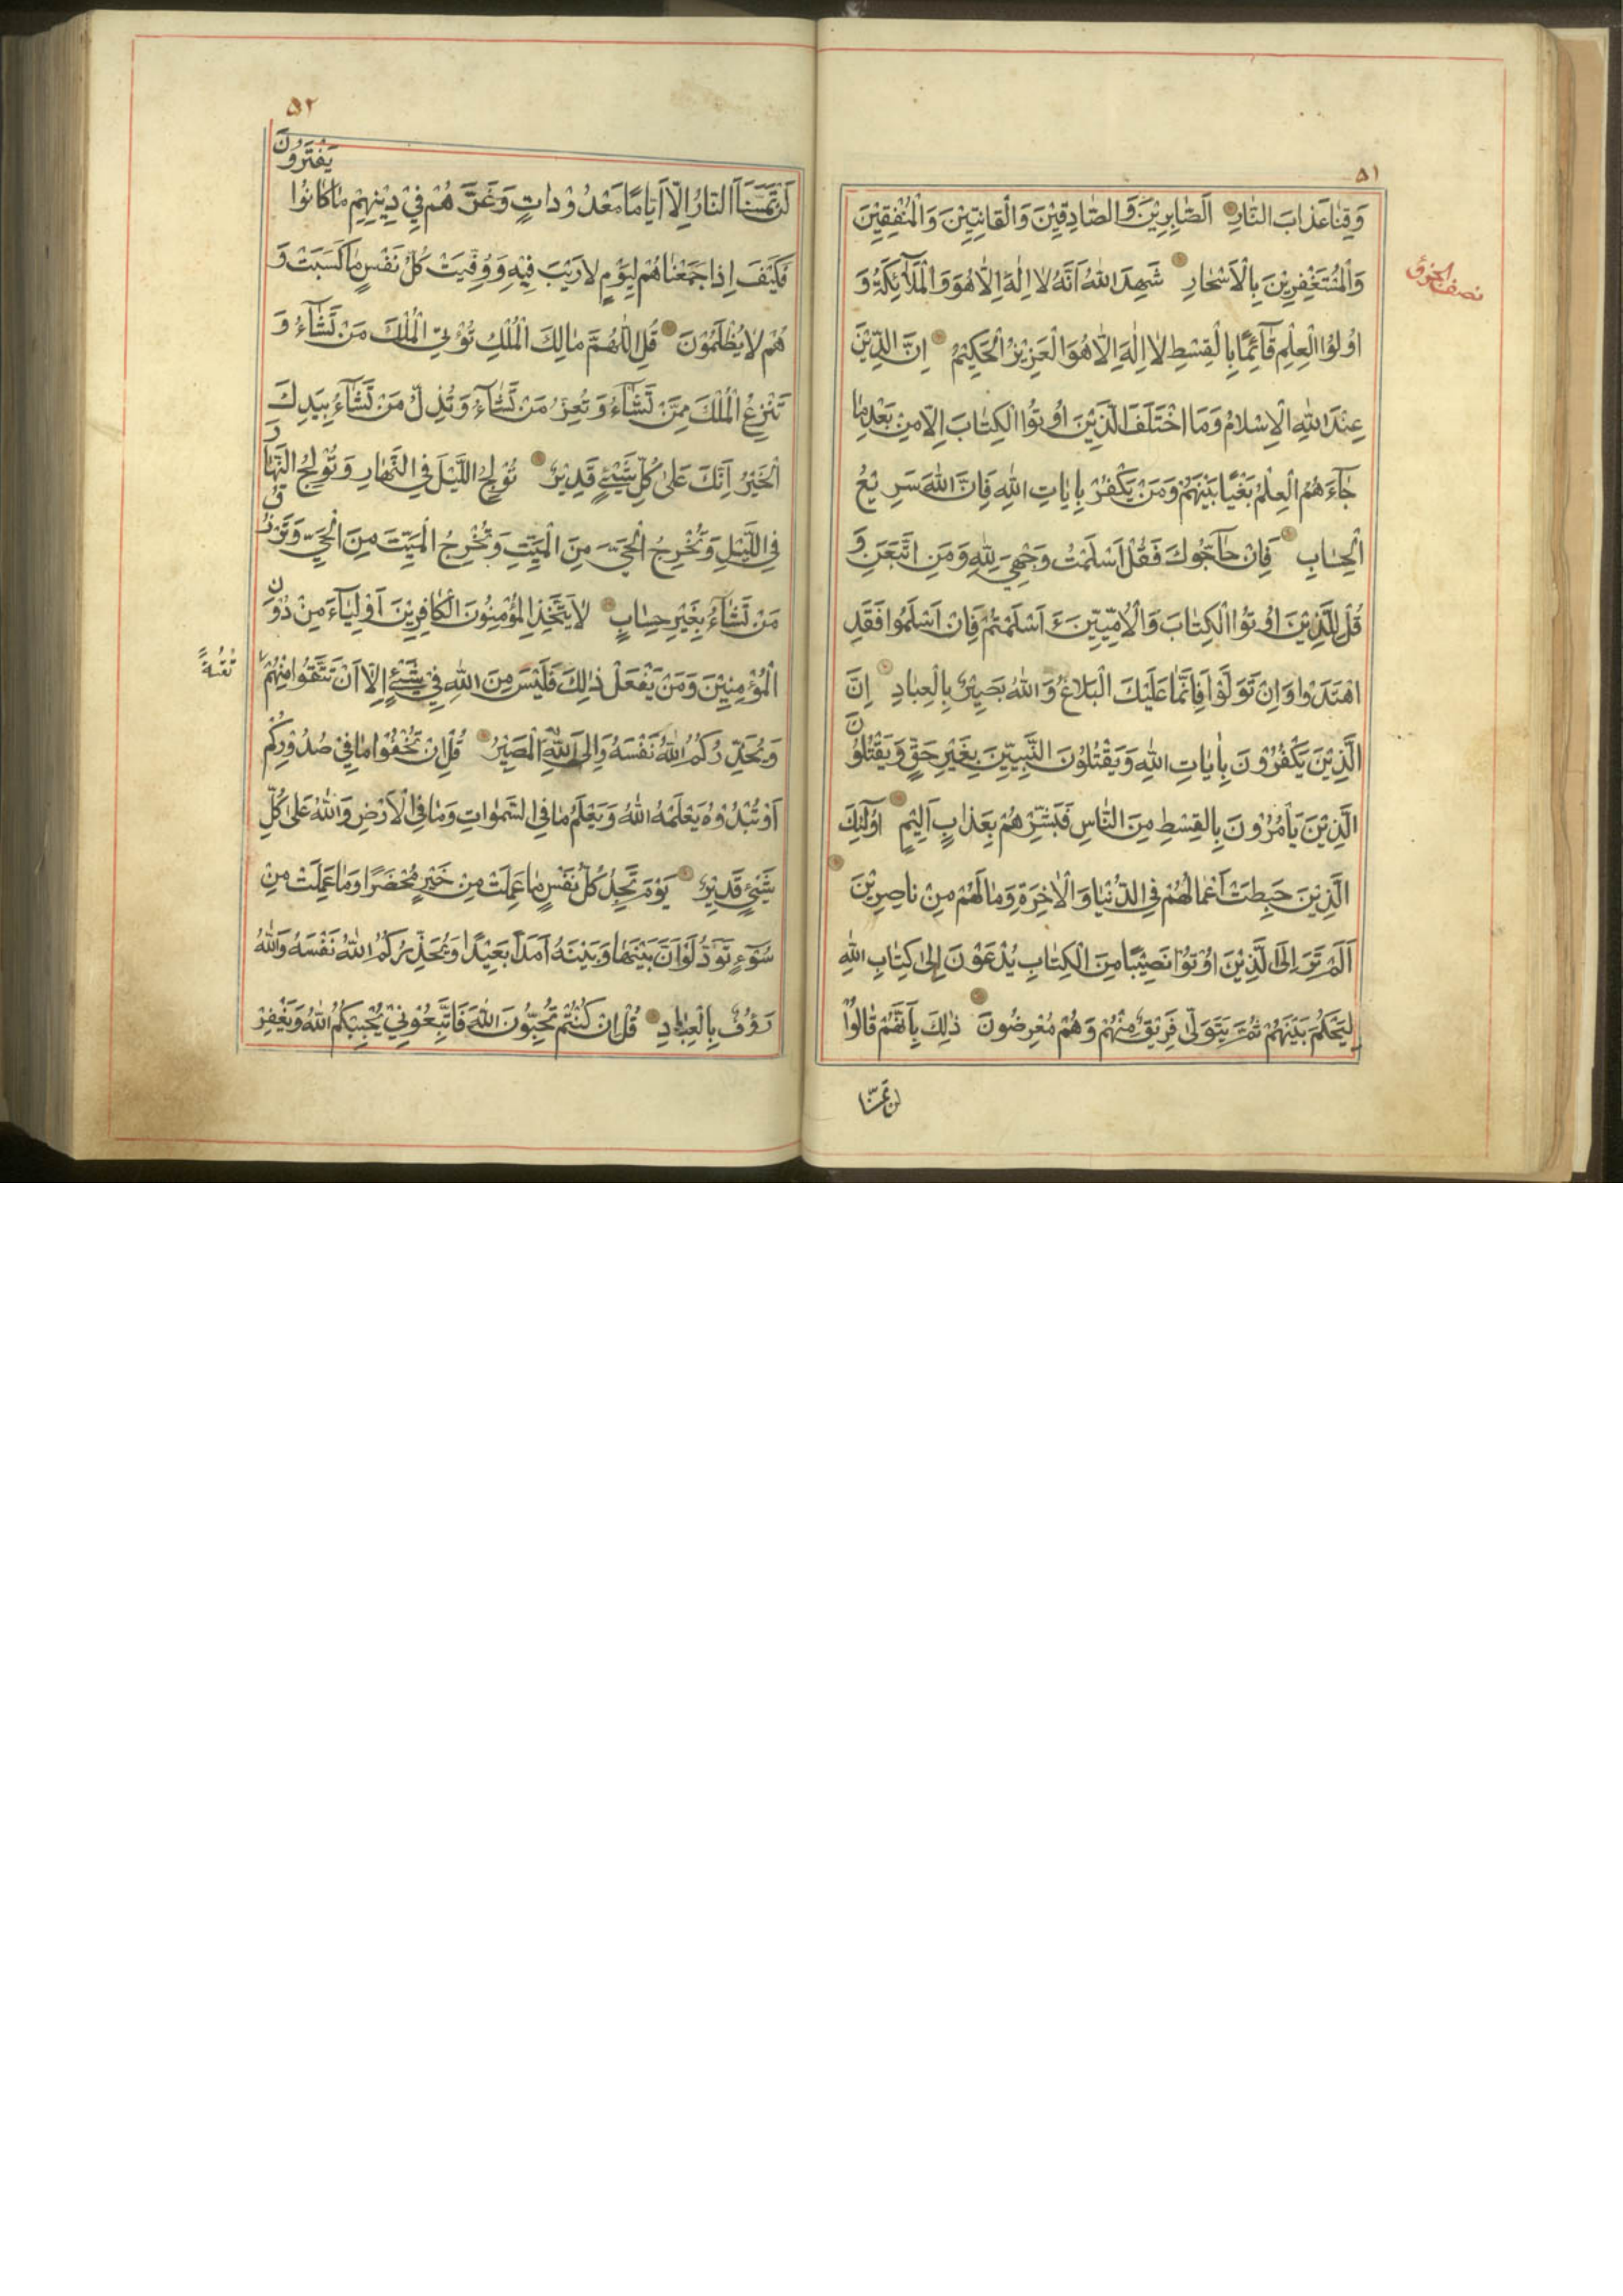 ۵۱
وَقِنَا عَذَابَ النَّارِ اَلصَّابِرِيْنَ وَالصَّادِقِيْنَ وَالْقَانِتِيْنَ وَالْمُنْفِقِيْنَ
وَالْمُسْتَغْفِرِيْنَ بِالْاَسْحَارِ شَهِدَ اللهُ اَنَّهُ لَا اِلٰهَ اِلَّا هُوَ وَالْمَلَآئِكَةُ وَ
نصف الجزؤ
اُولُوا الْعِلْمِ قَآئِمًا بِالْقِسْطِ لَا اِلٰهَ اِلَّا هُوَ الْعَزِيْزُ الْحَكِيْمُ اِنَّ الدِّيْنَ
عِنْدَ اللهِ الْاِسْلَامُ وَمَا اخْتَلَفَ الَّذِيْنَ اُوْتُوا الْكِتَابَ اِلَّا مِنْ بَعْدِ مَا
جَآءَهُمُ الْعِلْمُ بَغْيًا بَيْنَهُمْ وَمَنْ يَكْفُرْ بِاٰيَاتِ اللهِ فَاِنَّ اللهَ سَرِيْعُ
الْحِسَابِ فَاِنْ حَآجُّوكَ فَقُلْ اَسْلَمْتُ وَجْهِيَ لِلّٰهِ وَمَنِ اتَّبَعَنِ وَ
قُلْ لِلَّذِيْنَ اُوْتُوا الْكِتَابَ وَالْاُمِّيِّيْنَ ءَ اَسْلَمْتُمْ فَاِنْ اَسْلَمُوا فَقَدِ
اهْتَدَوْا وَاِنْ تَوَلَّوْا فَاِنَّمَا عَلَيْكَ الْبَلَاغُ وَاللهُ بَصِيْرٌ بِالْعِبَادِ اِنَّ
الَّذِيْنَ يَكْفُرُوْنَ بِاٰيَاتِ اللهِ وَيَقْتُلُوْنَ النَّبِيِّيْنَ بِغَيْرِ حَقٍّ وَيَقْتُلُوْنَ
الَّذِيْنَ يَاْمُرُوْنَ بِالْقِسْطِ مِنَ النَّاسِ فَبَشِّرْهُمْ بِعَذَابٍ اَلِيْمٍ اُولٰٓئِكَ
الَّذِيْنَ حَبِطَتْ اَعْمَالُهُمْ فِي الدُّنْيَا وَالْاٰخِرَةِ وَمَا لَهُمْ مِنْ نَاصِرِيْنَ
اَلَمْ تَرَ اِلَى الَّذِيْنَ اُوْتُوْا نَصِيْبًا مِنَ الْكِتَابِ يُدْعَوْنَ اِلٰى كِتَابِ اللهِ
لِيَحْكُمَ بَيْنَهُمْ ثُمَّ يَتَوَلّٰى فَرِيْقٌ مِنْهُمْ وَهُمْ مُعْرِضُونَ ذٰلِكَ بِاَنَّهُمْ قَالُوْا
لن تمسنا
۵۲
يَفْتَرُوْنَ
لَنْ تَمَسَّنَا النَّارُ اِلَّا اَيَّامًا مَعْدُوْدَاتٍ وَغَرَّهُمْ فِيْ دِيْنِهِمْ مَا كَانُوْا
فَكَيْفَ اِذَا جَمَعْنَاهُمْ لِيَوْمٍ لَا رَيْبَ فِيْهِ وَوُفِّيَتْ كُلُّ نَفْسٍ مَا كَسَبَتْ وَ
هُمْ لَا يُظْلَمُوْنَ قُلِ اللّٰهُمَّ مَالِكَ الْمُلْكِ تُؤْتِي الْمُلْكَ مَنْ تَشَآءُ وَ
تَنْزِعُ الْمُلْكَ مِمَّنْ تَشَآءُ وَتُعِزُّ مَنْ تَشَآءُ وَتُذِلُّ مَنْ تَشَآءُ بِيَدِكَ
الْخَيْرُ اِنَّكَ عَلٰى كُلِّ شَيْئٍ قَدِيْرٌ تُوْلِجُ اللَّيْلَ فِي النَّهَارِ وَتُوْلِجُ النَّهَارَ
فِي اللَّيْلِ وَتُخْرِجُ الْحَيَّ مِنَ الْمَيِّتِ وَتُخْرِجُ الْمَيِّتَ مِنَ الْحَيِّ وَتَرْزُقُ
مَنْ تَشَآءُ بِغَيْرِ حِسَابٍ لَا يَتَّخِذِ الْمُؤْمِنُونَ الْكَافِرِيْنَ اَوْلِيَآءَ مِنْ دُوْنِ
الْمُؤْمِنِيْنَ وَمَنْ يَفْعَلْ ذٰلِكَ فَلَيْسَ مِنَ اللهِ فِيْ شَيْئٍ اِلَّا اَنْ تَتَّقُوْا مِنْهُمْ
تُقٰىةً
وَيُحَذِّرُكُمُ اللهُ نَفْسَهُ وَاِلَى اللهِ الْمَصِيْرُ قُلْ اِنْ تُخْفُوْا مَا فِيْ صُدُوْرِكُمْ
اَوْ تُبْدُوْهُ يَعْلَمْهُ اللهُ وَيَعْلَمُ مَا فِي السَّمٰوَاتِ وَمَا فِي الْاَرْضِ وَاللهُ عَلٰى كُلِّ
شَيْئٍ قَدِيْرٌ يَوْمَ تَجِدُ كُلُّ نَفْسٍ مَا عَمِلَتْ مِنْ خَيْرٍ مُحْضَرًا وَمَا عَمِلَتْ مِنْ
سُوْٓءٍ تَوَدُّ لَوْ اَنَّ بَيْنَهَا وَبَيْنَهُ اَمَدًا بَعِيْدًا وَيُحَذِّرُكُمُ اللهُ نَفْسَهُ وَاللهُ
رَؤُفٌ بِالْعِبَادِ قُلْ اِنْ كُنْتُمْ تُحِبُّونَ اللهَ فَاتَّبِعُوْنِيْ يُحْبِبْكُمُ اللهُ وَيَغْفِرْ